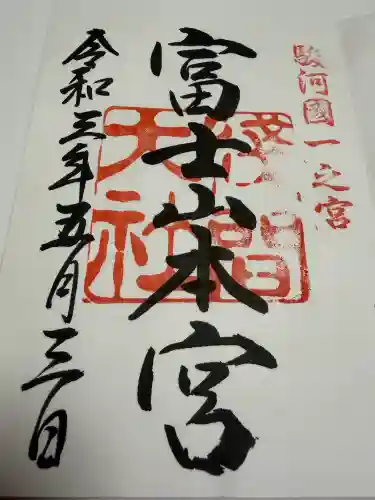 駿河國一之宮
富士山本宮
淺間大社
令和三年五月三日